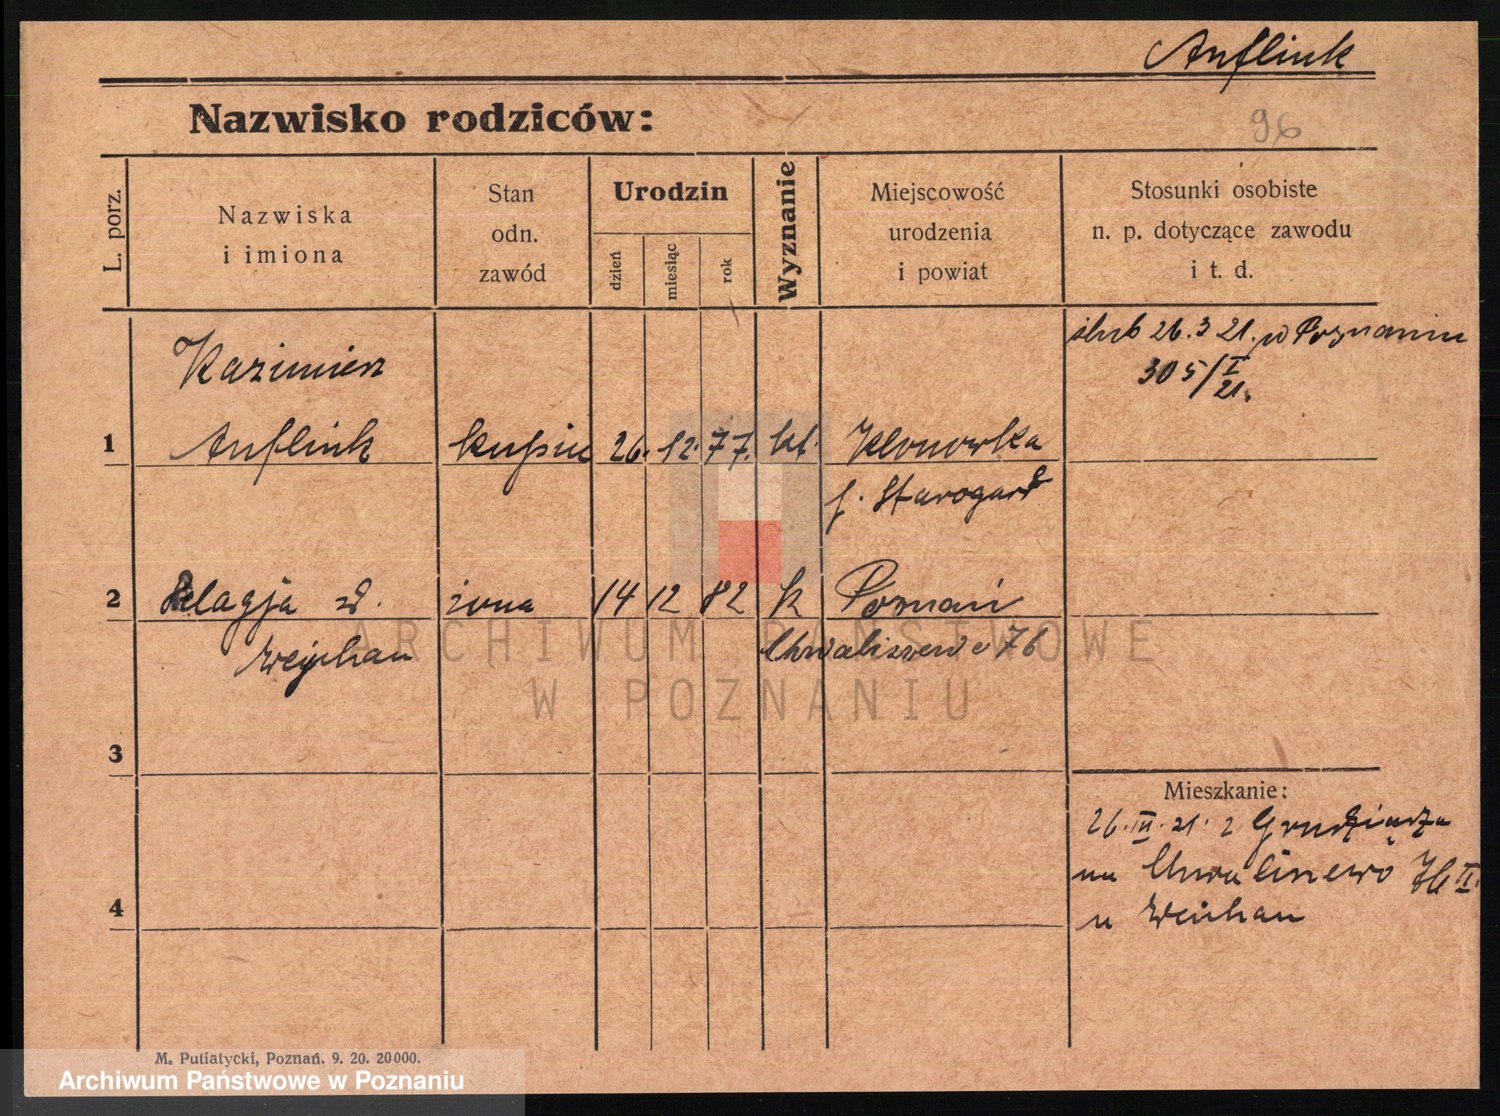 Anflink
Nazwisko rodziców:
96
L. porz.
Nazwiska
i imiona
Stan
odn.
zawód
Urodzin
dzień
miesiąc
rok
Wyznanie
Miejscowość
urodzenia
i powiat
Stosunki osobiste
n. p. dotyczące zawodu
i t. d.
ślub 26.3 21. w Poznaniu
305/I
21.
Kazimierz
1 Anflink kupiec 26. 12. 77. kt. Klonowka
Starogard
2 Pelagja żona 14 12 82 k Poznań
Chwaliszewo 76
ARCHIWUM PAŃSTWOWE
W POZNANIU
3
Mieszkanie:
26.III.21. z Grudziądza
na Chwaliszewo 76 II.
4
u
M. Putiatycki, Poznań. 9. 20. 20000.
Archiwum Państwowe w Poznaniu